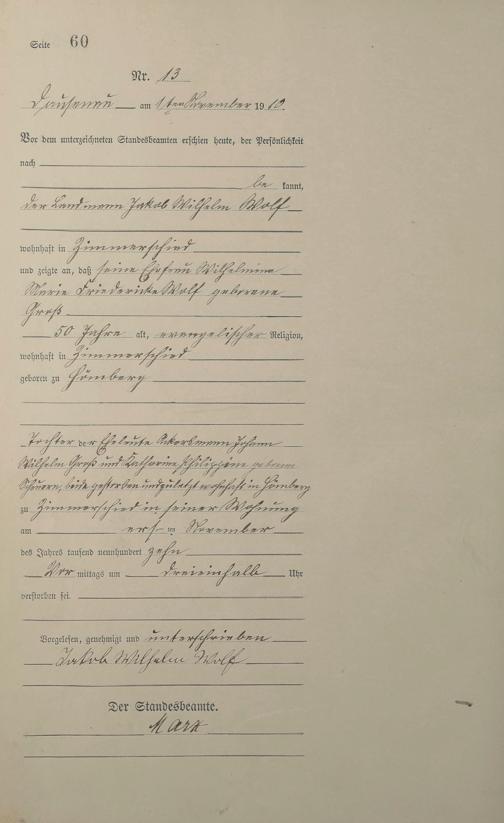 Seite 60
Nr. 13
Dausenau am 1ten November 1910.
Vor dem unterzeichneten Standesbeamten erschien heute, der Persönlichkeit
nach
be kannt,
der Landmann Jakob Wilhelm Wolf
wohnhaft in Zimmerschied
und zeigte an, daß seine Ehefrau Wilhelmine
Marie Friedericke Wolf geborene
Groß
50 Jahre alt, evangelischer Religion,
wohnhaft in Zimmerschied
geboren zu Hömberg
Tochter der Eheleute Ackersmann Johann
Wilhelm Groß und Katharine Philippine geborene
beide gestorben und zuletzt wohnhaft in Hömberg
zu Zimmerschied in seiner Wohnung
am ersten November
des Jahres tausend neunhundert zehn
Vor mittags um dreieinhalb Uhr
verstorben sei.
Vorgelesen, genehmigt und unterschrieben
Jakob Wilhelm Wolf
Der Standesbeamte.
Marx